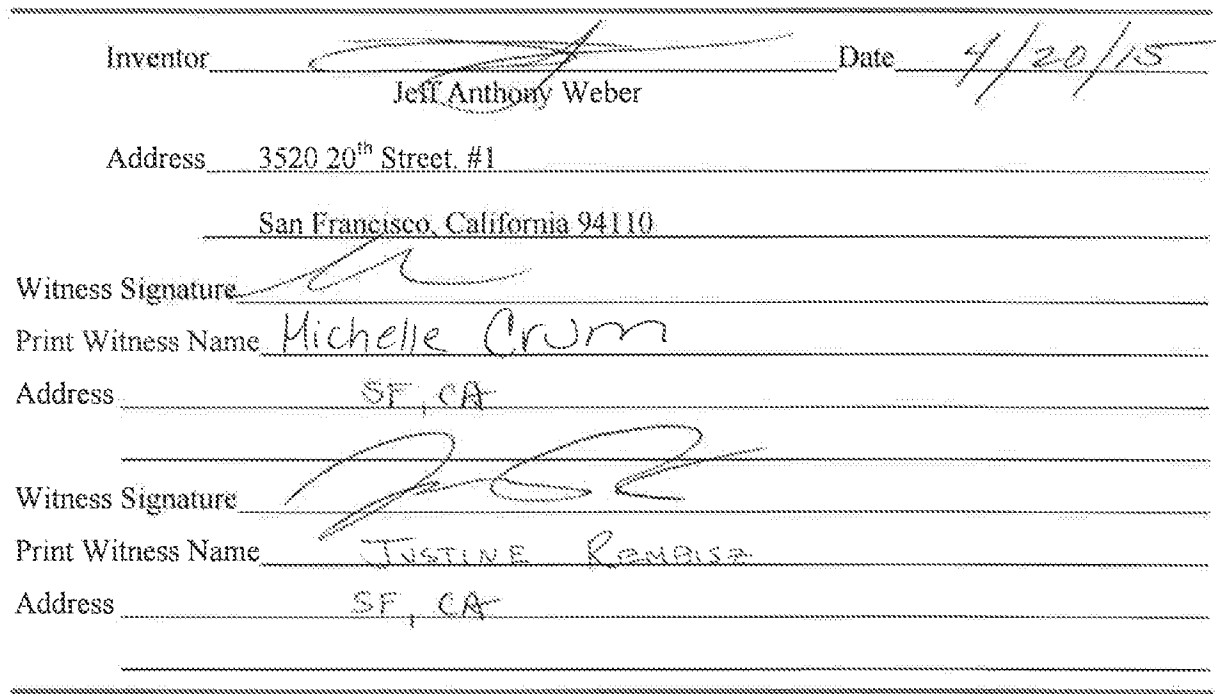 Inventor Date 4/20/15
Jeff Anthony Weber
Address 3520 20th Street. #1
San Francisco, California 94110
Witness Signature
Print Witness Name Michelle Crum
Address SF, CA
Witness Signature
Print Witness Name Justine
Address SF, CA